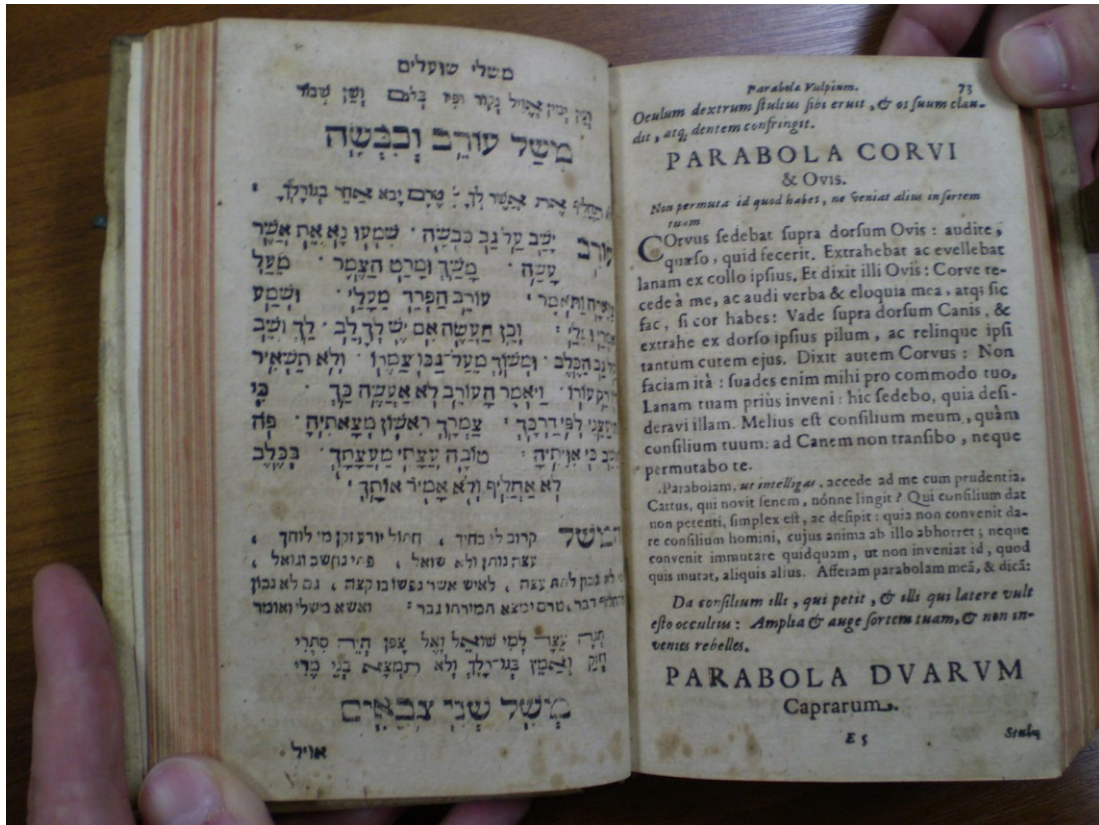 משלי שועלים
משל עורב וכבשה
אל תחליף את אשר לך : טרם יבא אחר בגורלך
עורב ישב על גב כבשה · שמעו נא את אשר
עשה · משך ומרט הצמר · מעל
צואריה ותאמר · עורב הפרך מעלי · ושמע
וכן תעשה אם יש לך לב · לך ושב
על גב הכלב · ומשוך מעל גבו צמרו · ולא תשאיר
רק עורו · ויאמר העורב לא אעשה כך כי
יעצתני לפי דרכך · צמרך ראשון מצאתיה · פה
אשב כי אויתיה · טובה עצתי מעצתך · בכלב
לא אחליף ולא אמיר אותך ·
המשל קרוב לי כחיך , חתול יודע זקן מי לוחך ,
עצה נותן ולא שואל , פתי נחשב וגואל ,
לא נכון לתת עצה , לאיש אשר נפשו בו קצה , גם לא נכון
להחליף דבר , טרם ימצא תמורתו גבר : ואשא משלי ואומר
חוה עצה למי שואל
חזק ואמץ בגורלך ולא תמצא בני מרי
משל שני צבאים
אויל
Parabola Vulpium. 73
Oculum dextrum stultus sibi eruit, & os suum clau-
dit, atq; dentem confringit.
PARABOLA CORVI
& Ovis.
Non permuta id quod habes, ne veniat alius in sortem
tuam.
COrvus sedebat supra dorsum Ovis : audite,
quæso, quid fecerit. Extrahebat ac evellebat
lanam ex collo ipsius. Et dixit illi Ovis: Corve re-
cede à me, ac audi verba & eloquia mea, atq; sic
fac, si cor habes: Vade supra dorsum Canis, &
extrahe ex dorso ipsius pilum, ac relinque ipsi
tantum cutem ejus. Dixit autem Corvus : Non
faciam ità : suades enim mihi pro commodo tuo.
Lanam tuam priùs inveni : hic sedebo, quia desi-
deravi illam. Melius est consilium meum, quàm
consilium tuum: ad Canem non transibo, neque
permutabo te.
Parabolam, ut intelligas, accede ad me cum prudentia.
Cattus, qui novit senem, nónne lingit? Qui consilium dat
non petenti, simplex est, ac desipit: quia non convenit da-
re consilium homini, cujus anima ab illo abhorret; neque
convenit immutare quidquam, ut non inveniat id, quod
quis mutat, aliquis alius. Afferam parabolam meã, & dicã:
Da consilium illi, qui petit, & illi qui latere vult
esto occultus: Amplia & auge sortem tuam, & non in-
venies rebelles.
PARABOLA DVARVM
Caprarum.
E 5